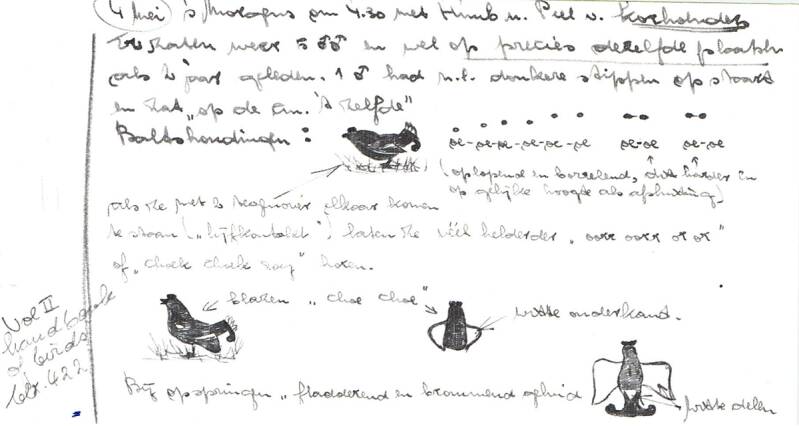 4 Mei 's Morgens om 4.30 met Huub n. Peel v. Korhoenders
Er zaten weer 5 ♂♂ en wel op precies dezelfde plaatsen
als 2 jaar geleden. 1 ♂ had n.l. donkere stippen op staart
en zat "op de 't zelfde"
Baltshoudingen:
oe-oe-oe-oe-oe-oe-oe oe-oe oe-oe
(oplopend en borrelend, dit harder en
op gelijke hoogte als afsluiting)
als ze met 2 tegenover elkaar komen
te staan ("lijfkontakt") laten ze véél helderder "oorr oorr or or"
of "choek choek" horen.
blazen "choe choe"
witte onderkant.
Bij opspringen "fladderend en brommend geluid
witte delen
Vol II
handbook
of birds
blz. 422